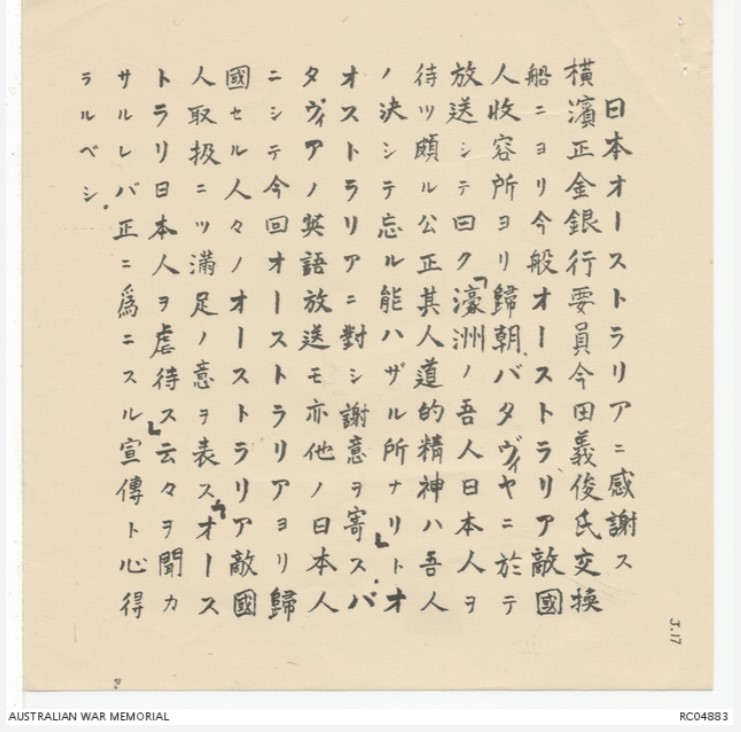 日本オーストラリアニ感謝ス
横濱正金銀行要員今田義俊氏交換
船ニヨリ今般オーストラリア敵國
人收容所ヨリ歸朝、バタヴィヤニ於テ
放送シテ曰ク「濠洲ノ吾人日本人ヲ
待ツ頗ル公正其人道的精神ハ吾人
ノ決シテ忘ル能ハザル所ナリ」トオ
オストラリアニ對シ謝意ヲ寄ス.バ
タヴィアノ英語放送モ亦他ノ日本人
ニシテ今回オーストラリアヨリ歸
國セル人々ノオーストラリア敵國
人取扱ニツ満足ノ意ヲ表ス「オース
トラリ日本人ヲ虐待ス」云々ヲ聞カ
サルレバ正ニ爲ニスル宣傳ト心得
ラルベシ.
J.17
AUSTRALIAN WAR MEMORIAL
RC04883